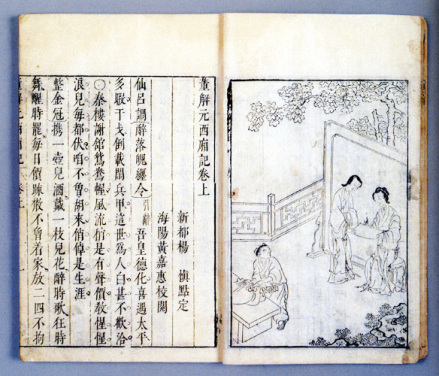 董解元西廂記卷上
新都楊 慎點定
海陽黃嘉惠校閱
仙呂調醉落魄纏令引辭吾皇德化喜遇太平
多暇干戈倒載閑兵甲這世爲人白甚不歡洽
〇秦樓謝館鴛鴦幄風流稍是有聲價教惺惺
浪兒每都伏咱不曾胡來俏倬是生涯
整金冠携一壺兒酒戴一枝兒花醉時歌狂時
舞醒時罷每日價疎散不曾着家放二四不拘
董解元西廂記 卷上 一